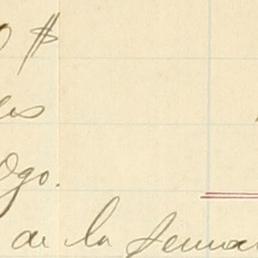 0 $
les
Ogo.
de la semana